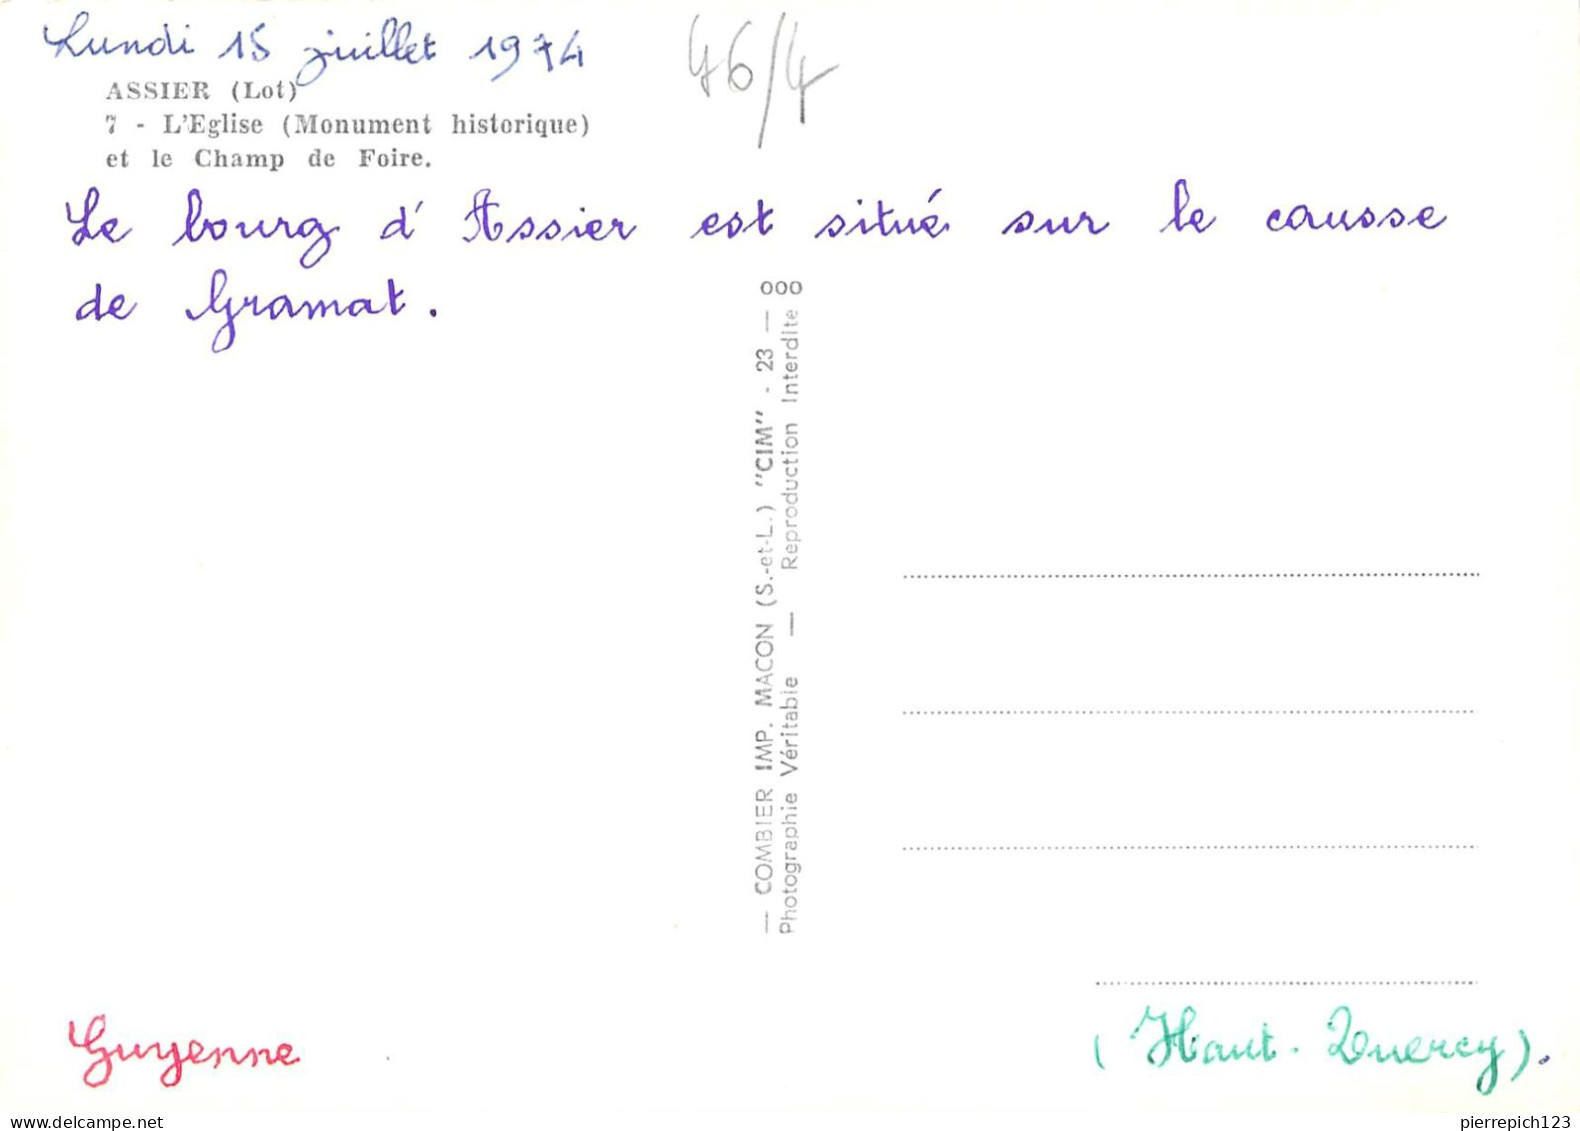 Lundi 15 juillet 1974
46/4
ASSIER (Lot)
7 - L'Eglise (Monument historique)
et le Champ de Foire.
Le bourg d'Assier est situé sur le causse
de Gramat.
— COMBIER IMP. MACON (S.-et-L.) "CIM" - 23 —
Photographie Véritable — Reproduction Interdite
Guyenne
(Haut-Quercy).
Delcampe.net
pierrepich123